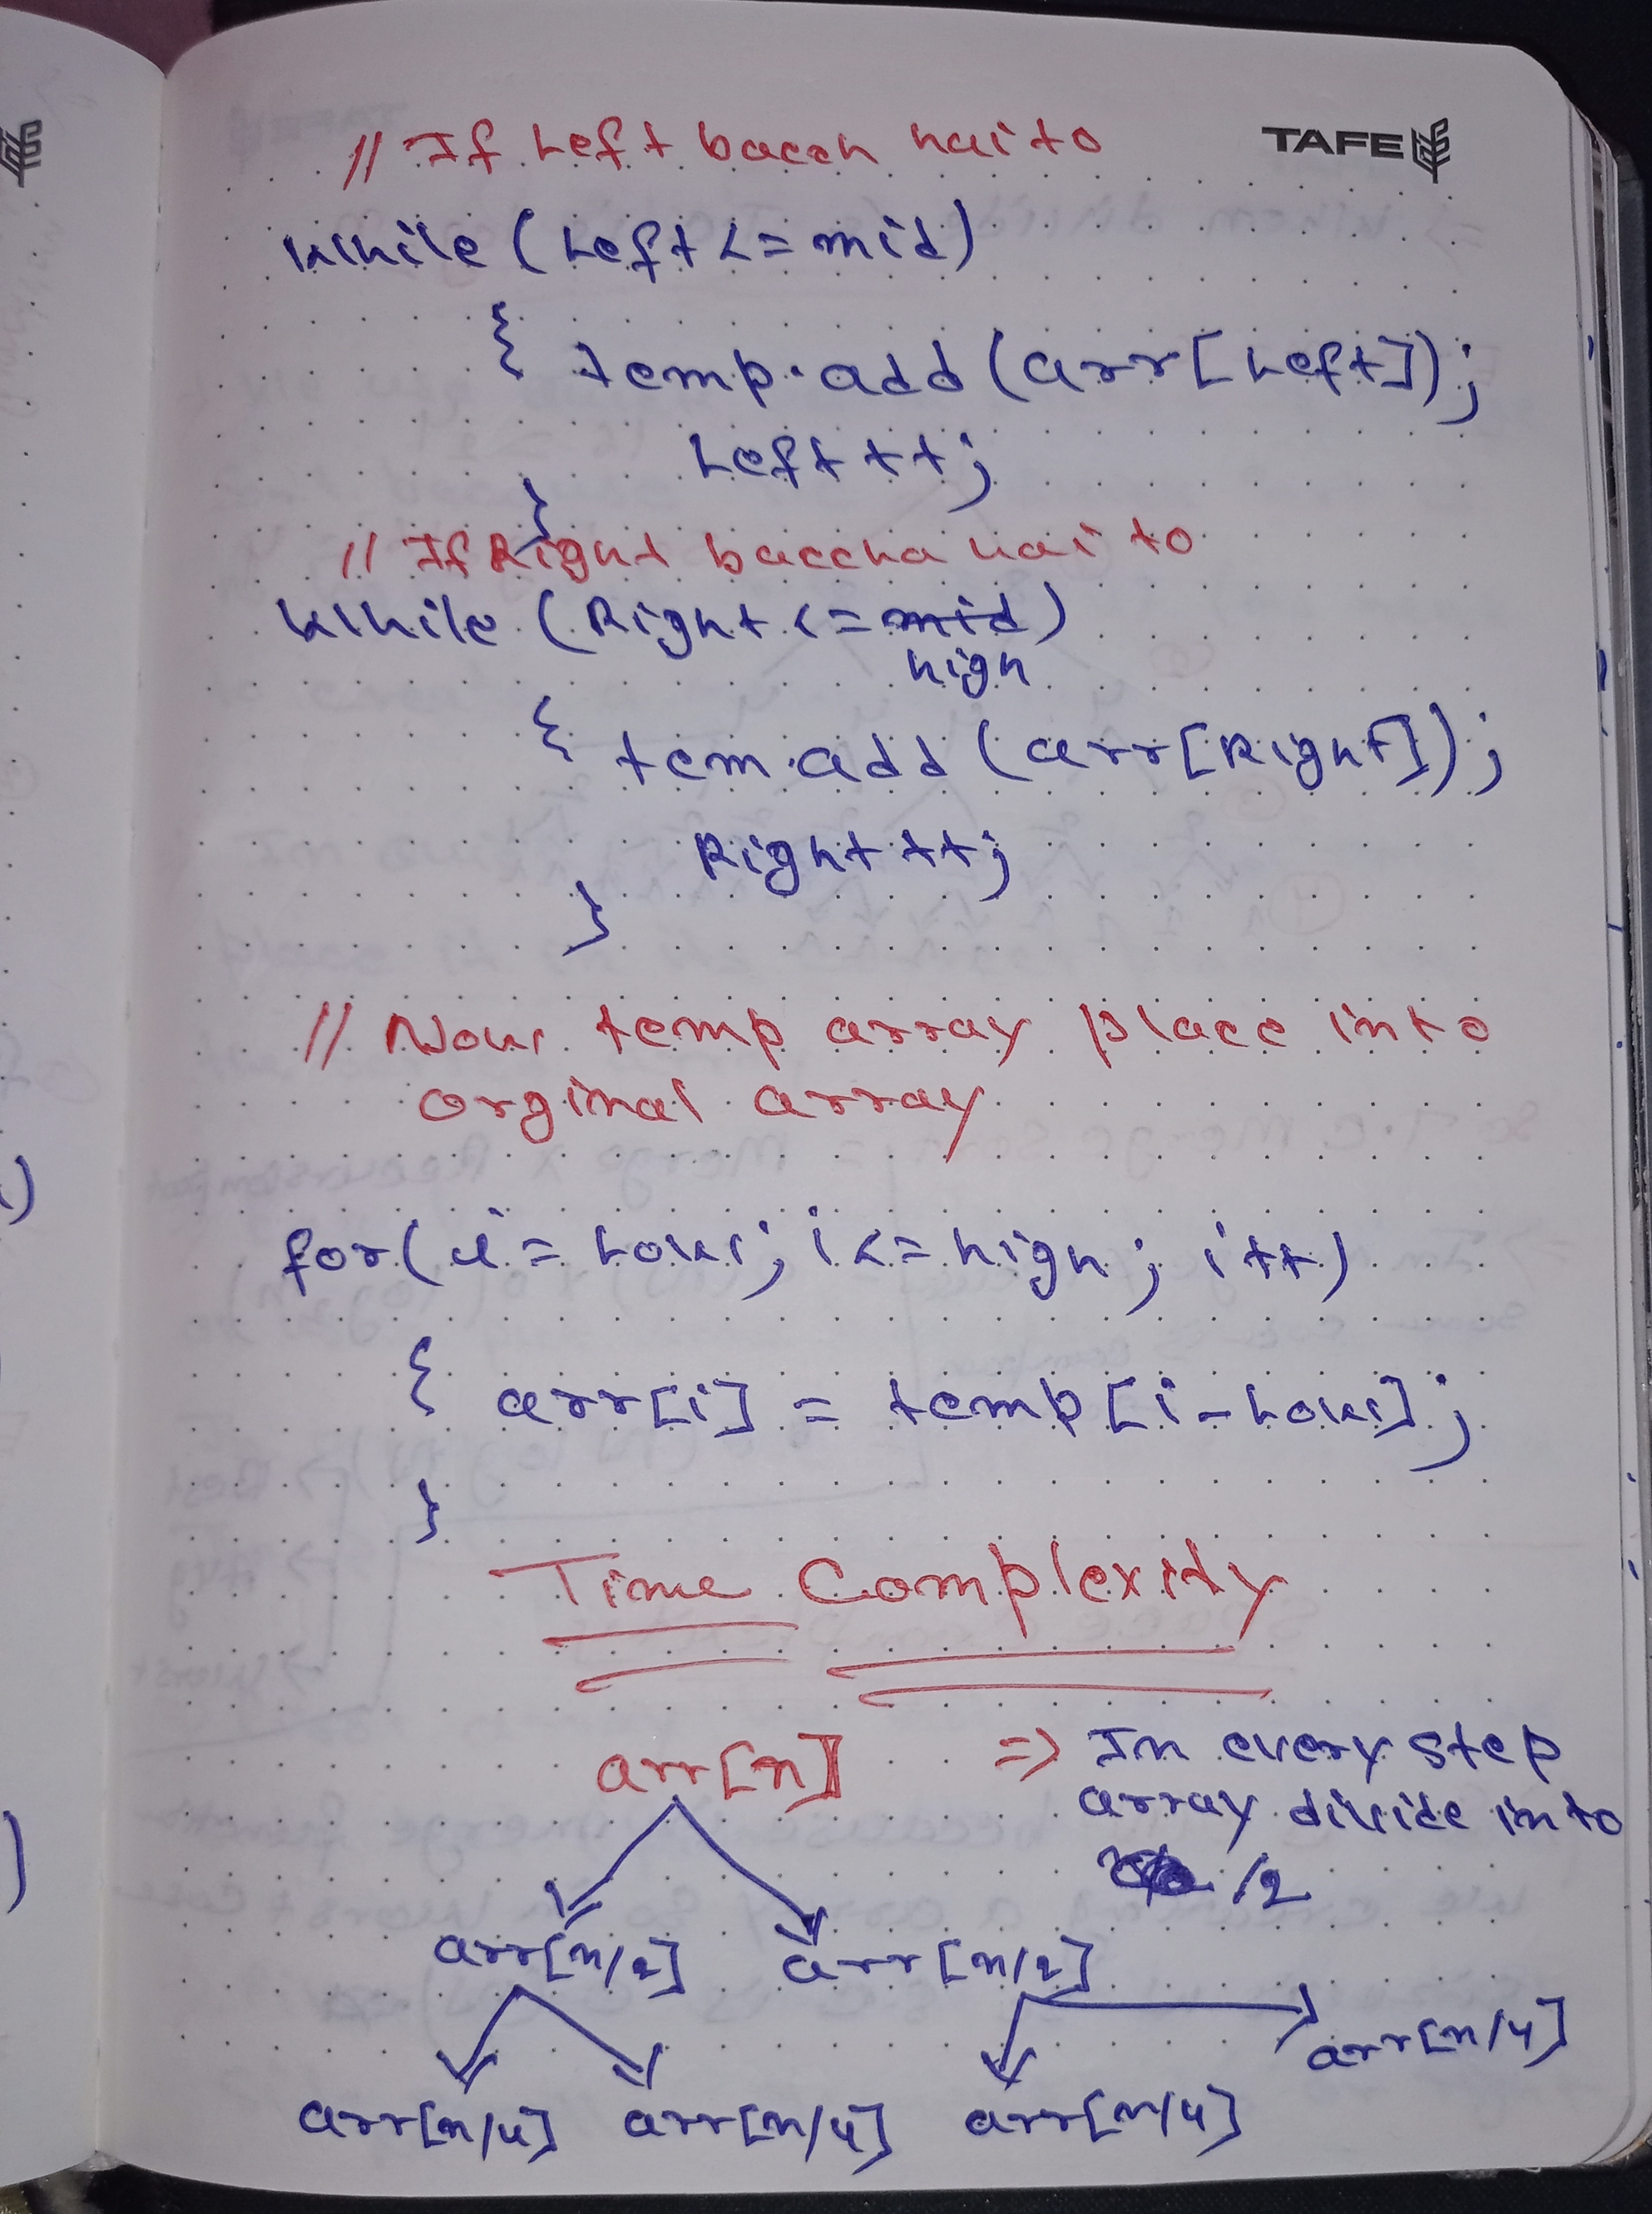 TAFE
// If Left bacch hai to
While (Left <= mid)
{ temp.add(arr[Left]);
Left++;
}
// If Right baccha hai to
While (Right <= mid)
high
{ tem.add(arr[Right]);
Right++;
}
// Now temp array place into
orginal array
for(i = Low; i <= high; i++)
{ arr[i] = temp[i-Low];
}
Time Complexity
arr[n] => In every step
array divide into
/2
arr[n/2] arr[n/2]
arr[n/4]
arr[n/4] arr[n/4] arr[n/4]